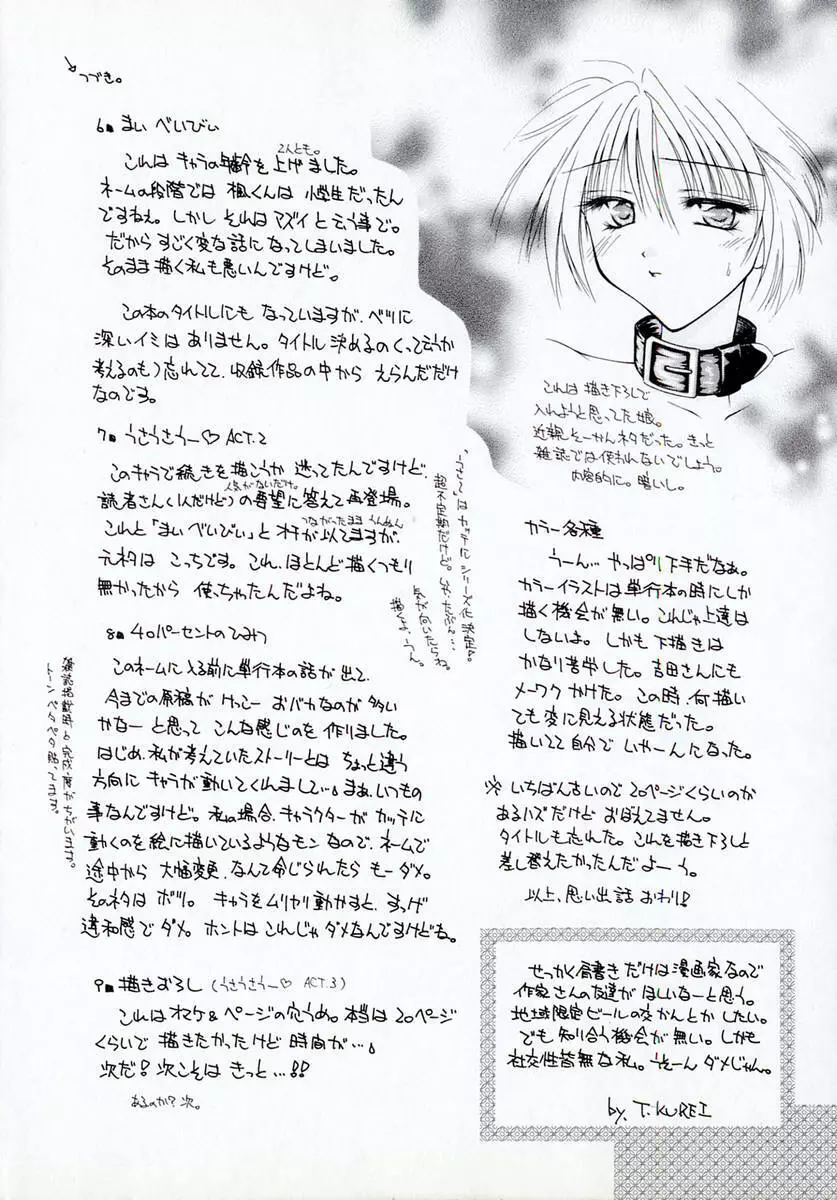 つづき。
6■ まい べいびぃ
これは キャラの年齢を 上げました。
2人とも。
ネームの段階では 楓くんは 小学生だったん
ですねぇ。しかし それは マズイ と云う事で。
だから すごく変な話に なってしまいました。
そのまま描く私も悪いんですけど。
この本のタイトルにも なっていますが、べつに
深いイミは ありません。タイトル 決めるの(くって云うか
考えるのも) 忘れてて、収録作品の中から えらんだだけ
なのです。
7■ うさうさうー♡ ACT.2
このキャラで続きを描こうか 迷ってたんですけど、
人気がないだけ。
読者さん(1人だけど)の要望に答えて再登場。
これと「まい べいびぃ」と オチが似てますが、
つながったまま うんぬん
元ネタは こっちです。これ、ほとんど描くつもり
無かったから 使っちゃたんだよね。
超不定期だけど。
気が向いたらね。
8■ 40パーセントのひまわり
このネームに入る前に単行本の話が出て、
今までの原稿が けっこー おバカなのが多い
かなーと思って こんな感じのを 作りました。
はじめ、私が考えていたストーリーとは ちょっと違う
方向に キャラが動いてくれまして…。まぁ、いつもの
事なんですけど。私の場合、キャラクターが カッテに
動くのを絵に描いているようなモンなので、ネームで
途中から 大幅変更、なんて命じられたら もーダメ。
そのネタは ボツ。 キャラをムリヤリ動かすと、すっげ
違和感で ダメ。ホントは これじゃダメなんですけどね。
雑誌掲載時と完成度がちがいます。
トーン ベタベタ貼ってます。
9■ 描きおろし (うさうさうー♡ ACT.3)
これはオマケ&ページの穴うめ。本当は20ページ
くらいで 描きたかったけど 時間が…。
次だ! 次こそは きっと…!!
あるのか? 次。
これは 描き下ろしで
入れようと思ってた娘。
近親そーかんネタだった。きっと
雑誌では使われないでしょう。
内容的に。暗いし。
カラー各種
うーん… やっぱり下手だなぁ。
カラーイラストは単行本の時にしか
描く機会が無い。これじゃ上達は
しないよ。しかも 下描きは
かなり苦労した。吉田さんにも
メーワクかけた。この時、何描い
ても変に見える状態だった。
描いてて自分で いやーんになった。
※ いちばんさいので 20ページくらいのが
あるハズだけど おぼえてません。
タイトルも忘れた。これを描き下ろしと
差し替えたかったんだよー。
以上、思い出話 おわり!
せっかく肩書きだけは漫画家なので
作家さんの友達がほしいなーと思う。
地域限定ビールの交かんとか したい。
でも 知り合う機会が無い。しかも
社交性皆無な私。うそーん ダメじゃん。
by. T.KUREI